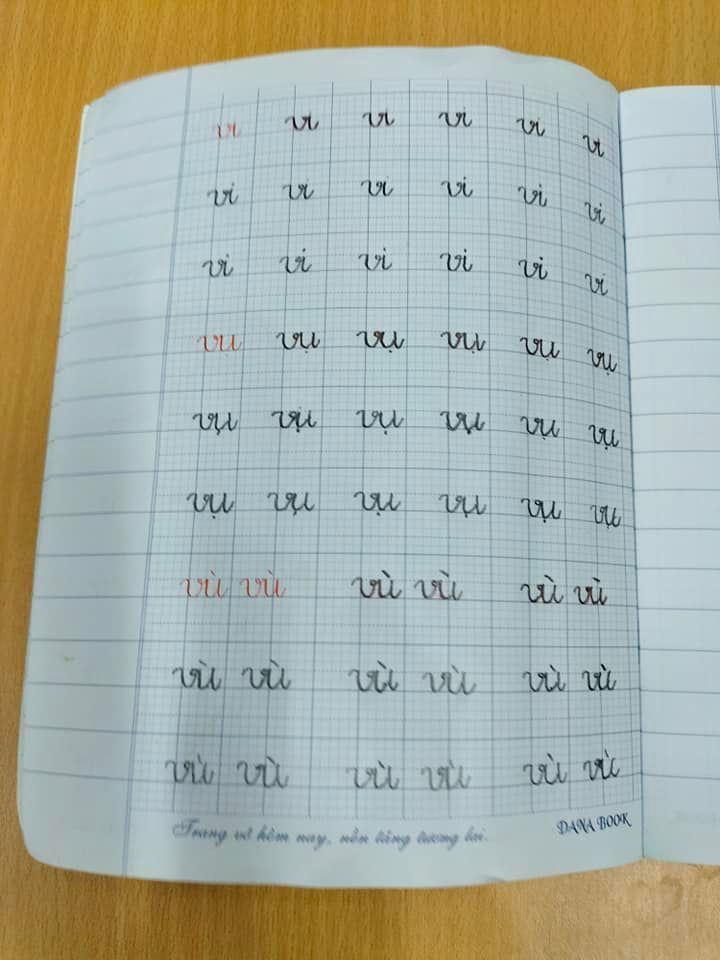 vi vi vi vi vi vi
vi vi vi vi vi vi
vi vi vi vi vi vi
vu vụ vụ vụ vụ vụ
vụ vụ vụ vụ vụ vụ
vụ vụ vụ vụ vụ vụ
vù vù vù vù vù vù
vù vù vù vù vù vù
vù vù vù vù vù vù
Trang vở hôm nay, nền tảng tương lai. DANA BOOK